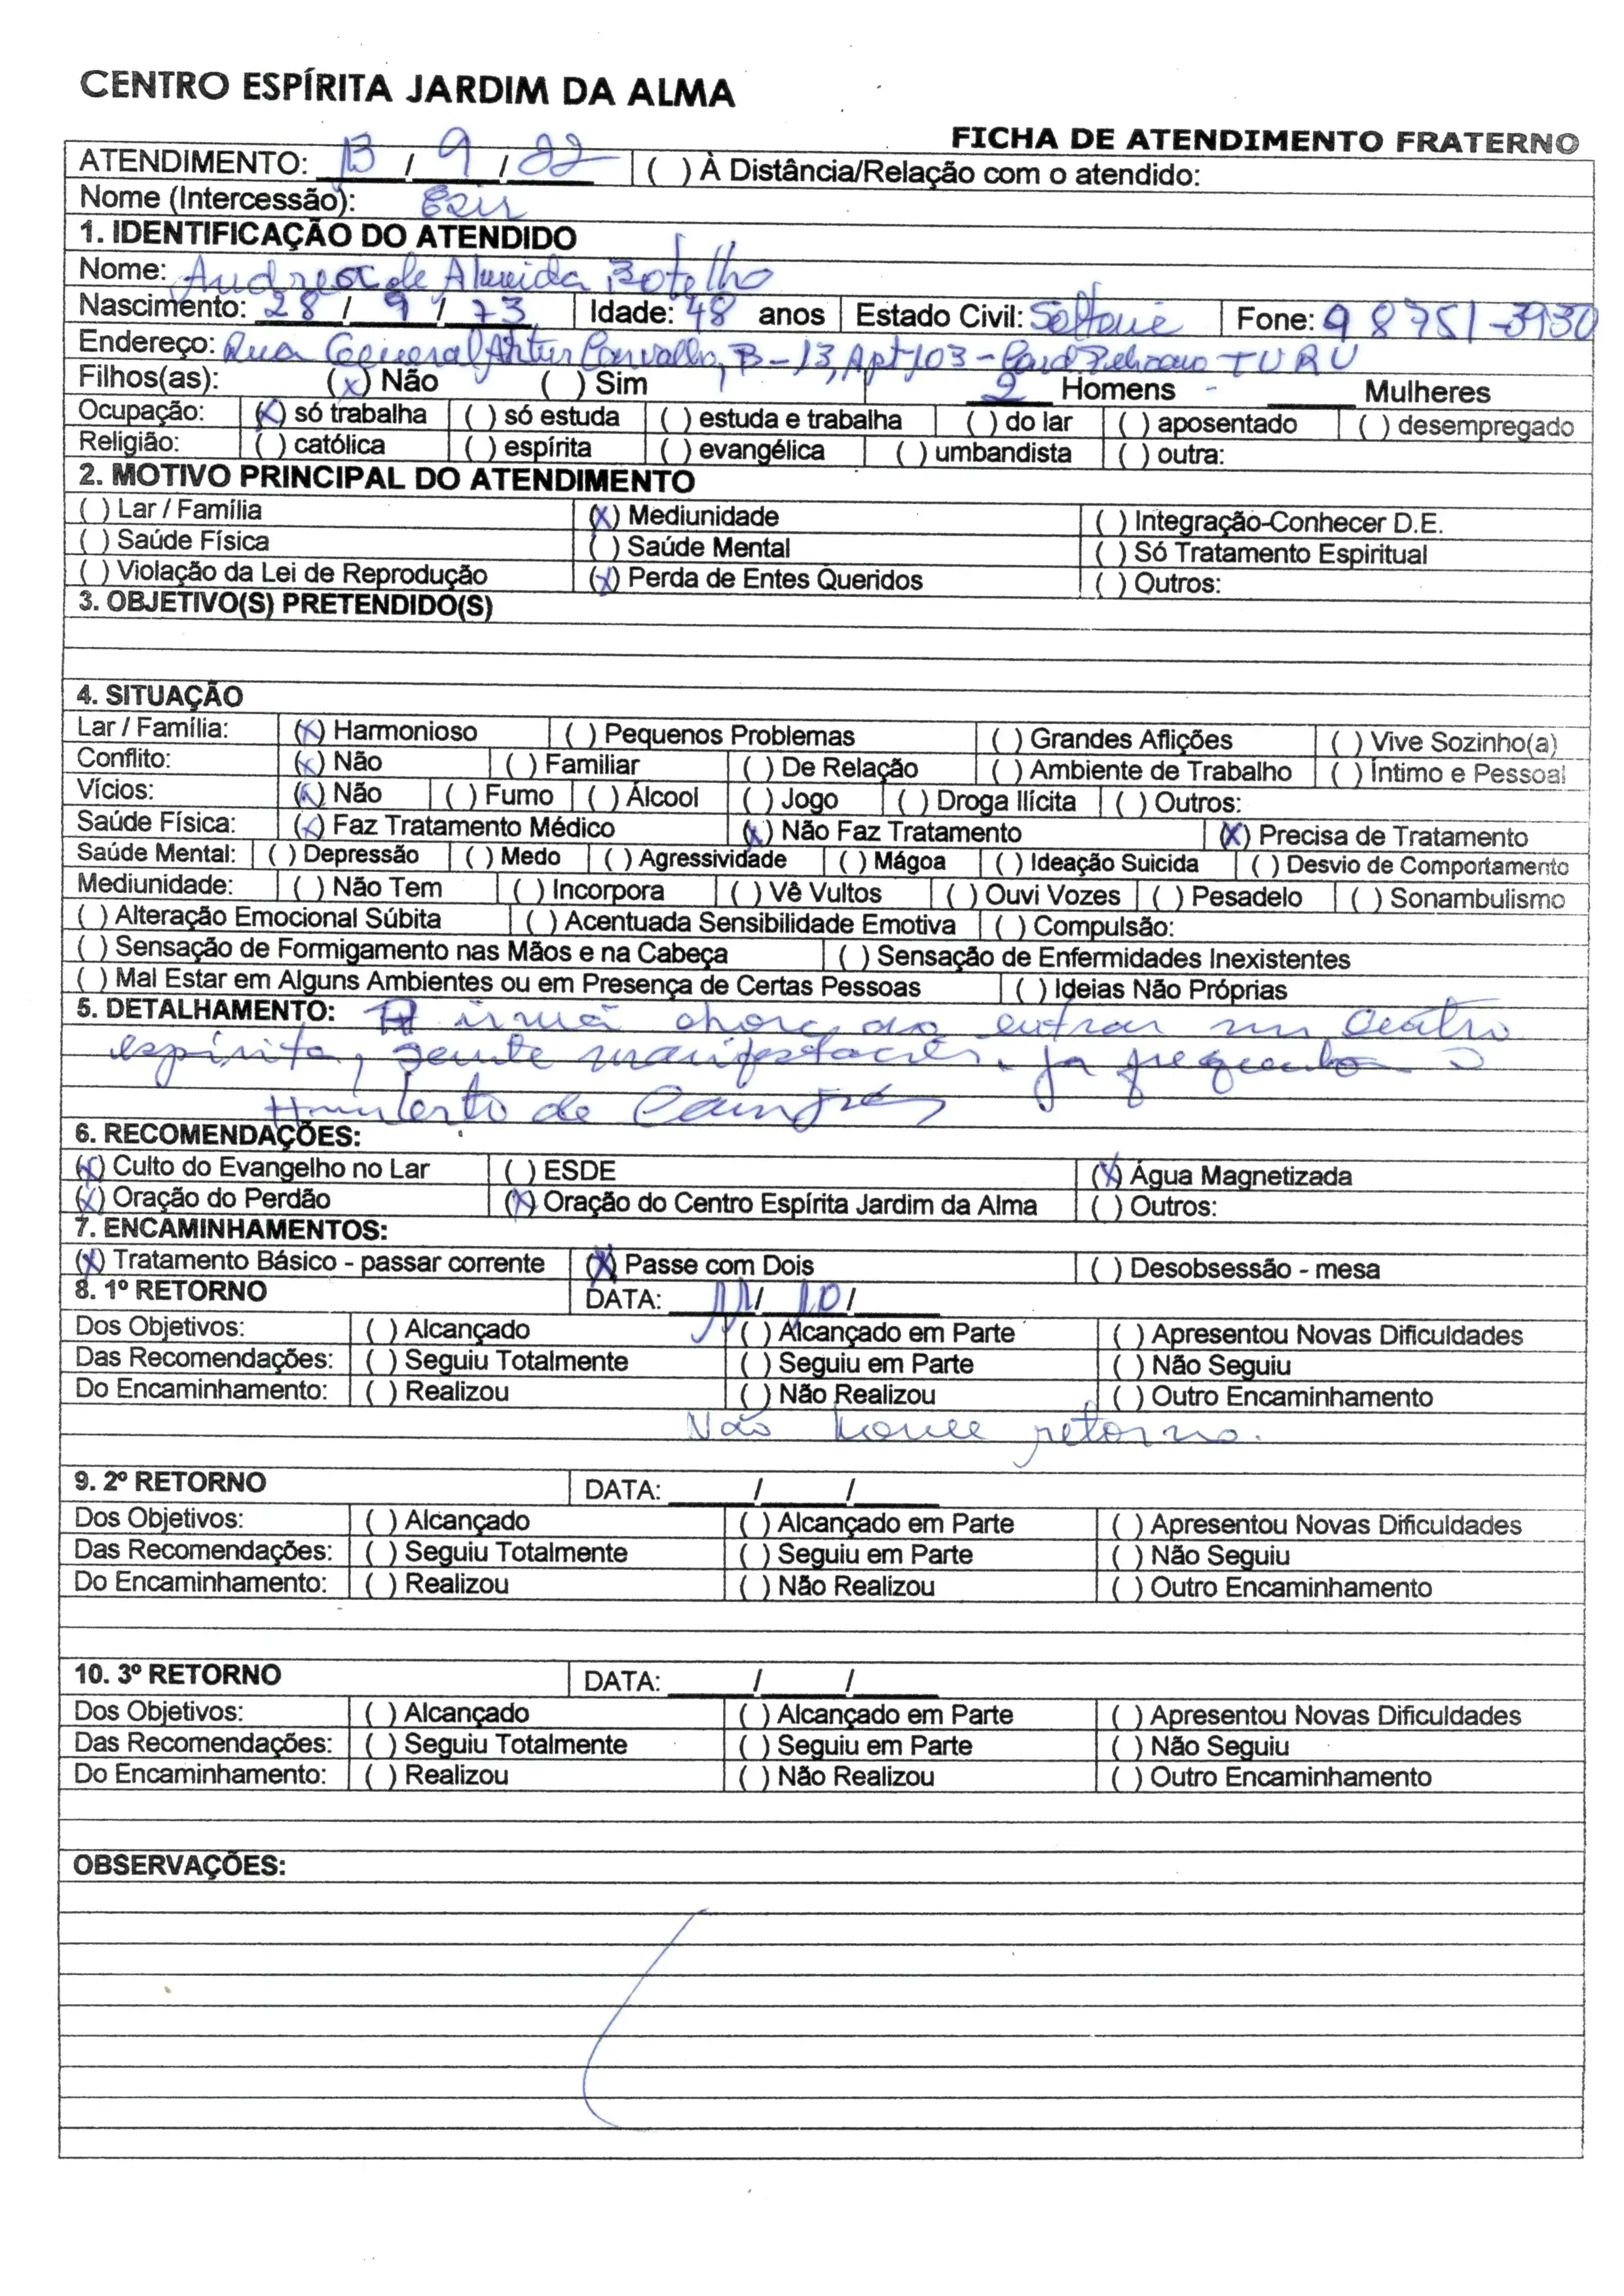 CENTRO ESPÍRITA JARDIM DA ALMA
FICHA DE ATENDIMENTO FRATERNO
ATENDIMENTO: 13 / 9 / 22 ( ) À Distância/Relação com o atendido:
Nome (Intercessão): Ezir
1. IDENTIFICAÇÃO DO ATENDIDO
Nome: Andrea de Almeida Botelho
Nascimento: 28 / 9 / 73 Idade: 48 anos Estado Civil: Fone: 98751-3930
Endereço: Rua General Artur Carvalho, B-13, Apt 103 - TURU
Filhos(as): (x) Não ( ) Sim 2 Homens - ____ Mulheres
Ocupação: (x) só trabalha ( ) só estuda ( ) estuda e trabalha ( ) do lar ( ) aposentado ( ) desempregado
Religião: ( ) católica ( ) espírita ( ) evangélica ( ) umbandista ( ) outra:
2. MOTIVO PRINCIPAL DO ATENDIMENTO
( ) Lar / Família (x) Mediunidade ( ) Integração-Conhecer D.E.
( ) Saúde Física ( ) Saúde Mental ( ) Só Tratamento Espiritual
( ) Violação da Lei de Reprodução (x) Perda de Entes Queridos ( ) Outros:
3. OBJETIVO(S) PRETENDIDO(S)
4. SITUAÇÃO
Lar / Família: (x) Harmonioso ( ) Pequenos Problemas ( ) Grandes Aflições ( ) Vive Sozinho(a)
Conflito: (x) Não ( ) Familiar ( ) De Relação ( ) Ambiente de Trabalho ( ) Íntimo e Pessoal
Vícios: (x) Não ( ) Fumo ( ) Álcool ( ) Jogo ( ) Droga Ilícita ( ) Outros:
Saúde Física: (x) Faz Tratamento Médico (x) Não Faz Tratamento (x) Precisa de Tratamento
Saúde Mental: ( ) Depressão ( ) Medo ( ) Agressividade ( ) Mágoa ( ) Ideação Suicida ( ) Desvio de Comportamento
Mediunidade: ( ) Não Tem ( ) Incorpora ( ) Vê Vultos ( ) Ouvi Vozes ( ) Pesadelo ( ) Sonambulismo
( ) Alteração Emocional Súbita ( ) Acentuada Sensibilidade Emotiva ( ) Compulsão:
( ) Sensação de Formigamento nas Mãos e na Cabeça ( ) Sensação de Enfermidades Inexistentes
( ) Mal Estar em Alguns Ambientes ou em Presença de Certas Pessoas ( ) Ideias Não Próprias
5. DETALHAMENTO: A irmã chora ao entrar num centro
espírita, sente manifestações. já frequentou o
Humberto de Campos
6. RECOMENDAÇÕES:
(x) Culto do Evangelho no Lar ( ) ESDE (x) Água Magnetizada
(x) Oração do Perdão (x) Oração do Centro Espírita Jardim da Alma ( ) Outros:
7. ENCAMINHAMENTOS:
(x) Tratamento Básico - passar corrente (x) Passe com Dois ( ) Desobsessão - mesa
8. 1º RETORNO DATA: 11/ 10 / ____
Dos Objetivos: ( ) Alcançado ( ) Alcançado em Parte ( ) Apresentou Novas Dificuldades
Das Recomendações: ( ) Seguiu Totalmente ( ) Seguiu em Parte ( ) Não Seguiu
Do Encaminhamento: ( ) Realizou ( ) Não Realizou ( ) Outro Encaminhamento
Não houve retorno.
9. 2º RETORNO DATA: ____/____/____
Dos Objetivos: ( ) Alcançado ( ) Alcançado em Parte ( ) Apresentou Novas Dificuldades
Das Recomendações: ( ) Seguiu Totalmente ( ) Seguiu em Parte ( ) Não Seguiu
Do Encaminhamento: ( ) Realizou ( ) Não Realizou ( ) Outro Encaminhamento
10. 3º RETORNO DATA: ____/____/____
Dos Objetivos: ( ) Alcançado ( ) Alcançado em Parte ( ) Apresentou Novas Dificuldades
Das Recomendações: ( ) Seguiu Totalmente ( ) Seguiu em Parte ( ) Não Seguiu
Do Encaminhamento: ( ) Realizou ( ) Não Realizou ( ) Outro Encaminhamento
OBSERVAÇÕES: